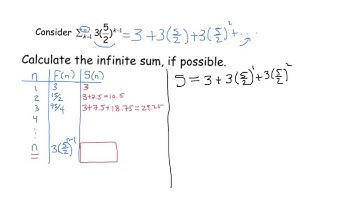 Consider Σ_{k=1}^{∞} 3(5/2)^{k-1} = 3 + 3(5/2) + 3(5/2)^2 + ...
Calculate the infinite sum, if possible.
n F(n) S(n)
1 3 3
2 15/2 3+7.5=10.5
3 75/4 3+7.5+18.75=29.25
4
:
n 3(5/2)^{n-1}
S = 3 + 3(5/2)^1 + 3(5/2)^2